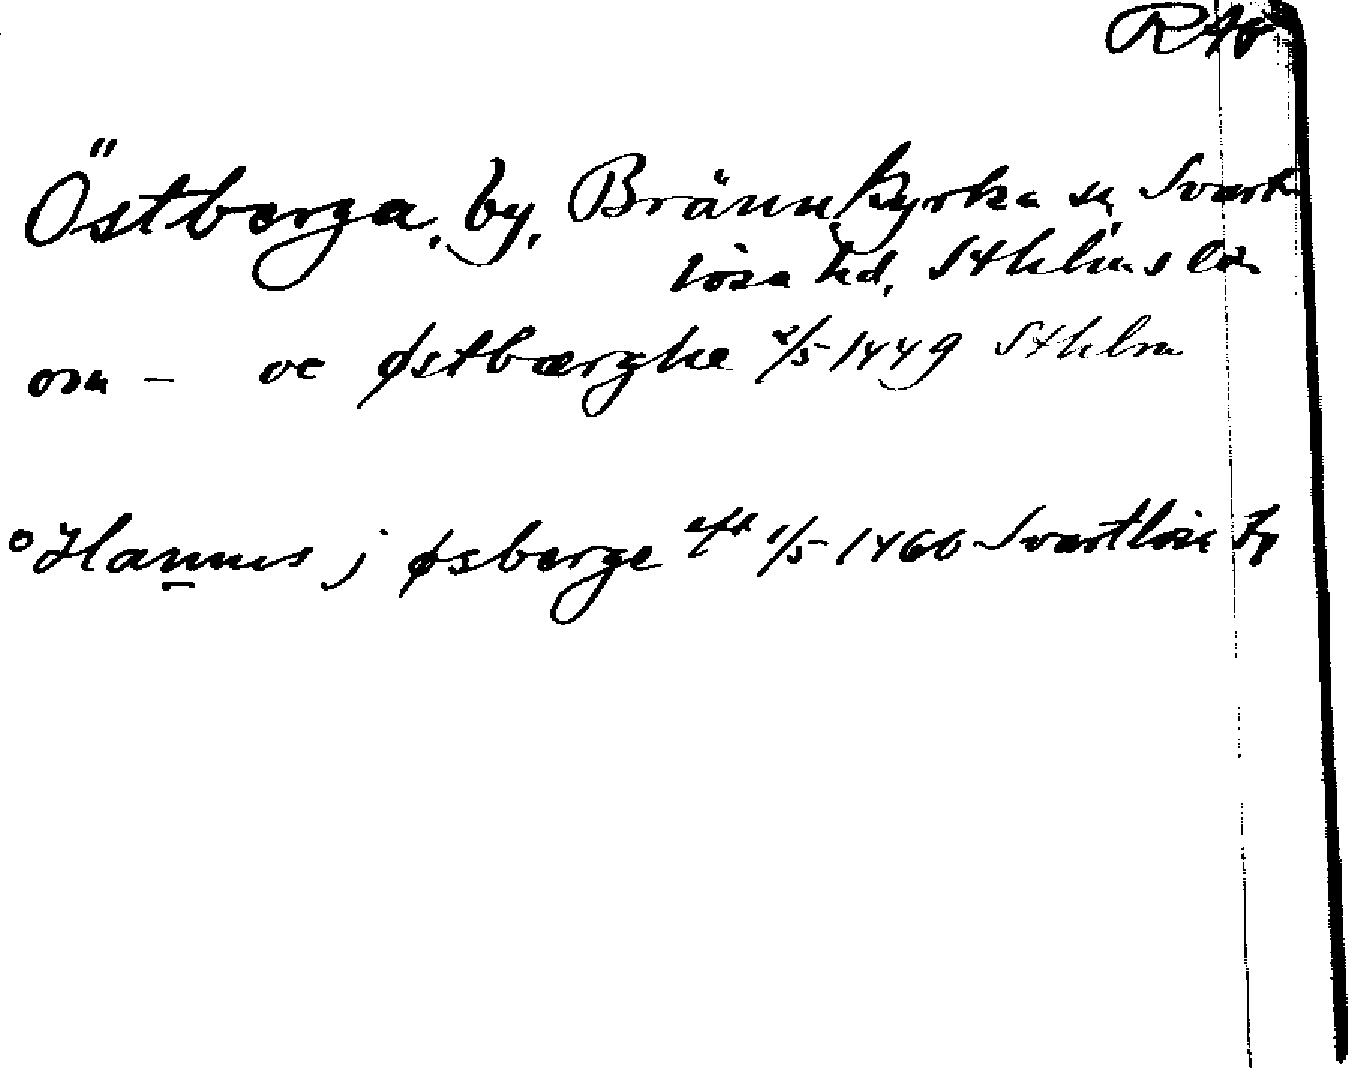 RAp
Östberga, by, Brännkyrka sn, Svart-
lösa hd, Sthlms län
om – oc østbærghe 2/5 1449 Sthlm
Hannus j øsberge eft 1/5 1460 Svartlösa